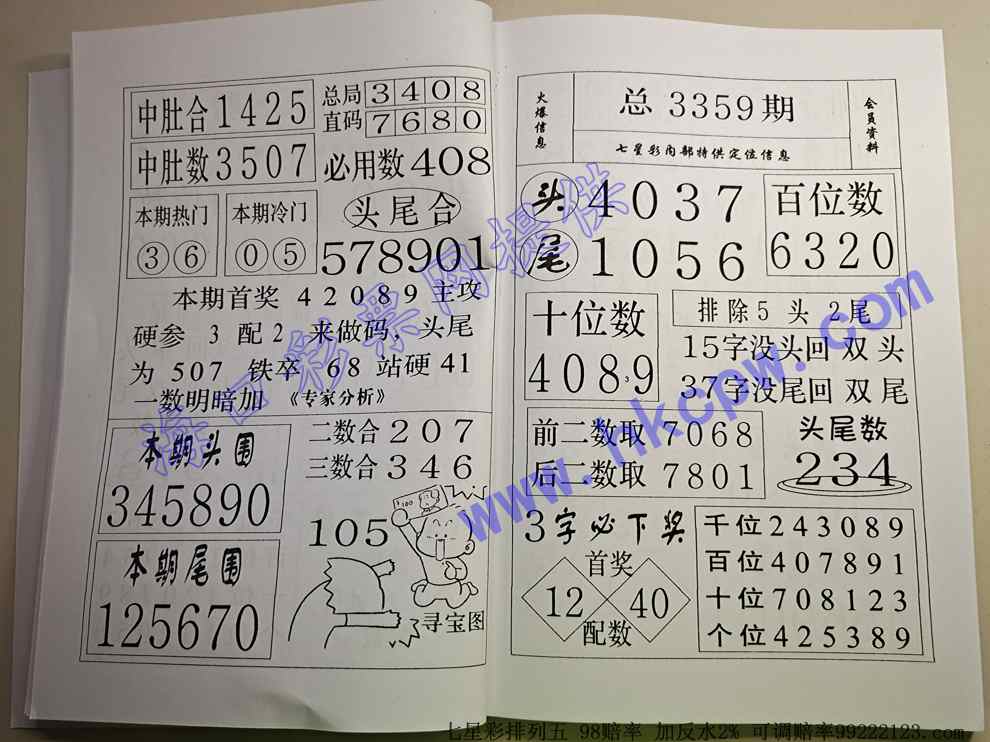 中肚合1425
中肚数3507
总局 3408
直码 7680
必用数408
本期热门
③⑥
本期冷门
⓪⑤
头尾合
578901
本期首奖 42089主攻
硬参 3 配2 来做码,头尾
为 507 铁卒 68 站硬 41
一数明暗加 《专家分析》
本期头围
345890
本期尾围
125670
二数合207
三数合346
105
100
寻宝图
火爆信息
总 3359期
七星彩内部特供定位信息
会员资料
头 4037
尾 1056
百位数
6320
十位数
4089
3
排除5 头 2尾
15字没头回 双头
37字没尾回 双尾
前二数取 7068
后二数取 7801
头尾数
234
3字必下奖
首奖
12 40
配数
千位243089
百位407891
十位708123
个位425389
海口彩票网提供
www.hkcpw.com
七星彩排列五 98赔率 加反水2% 可调赔率99222123.com